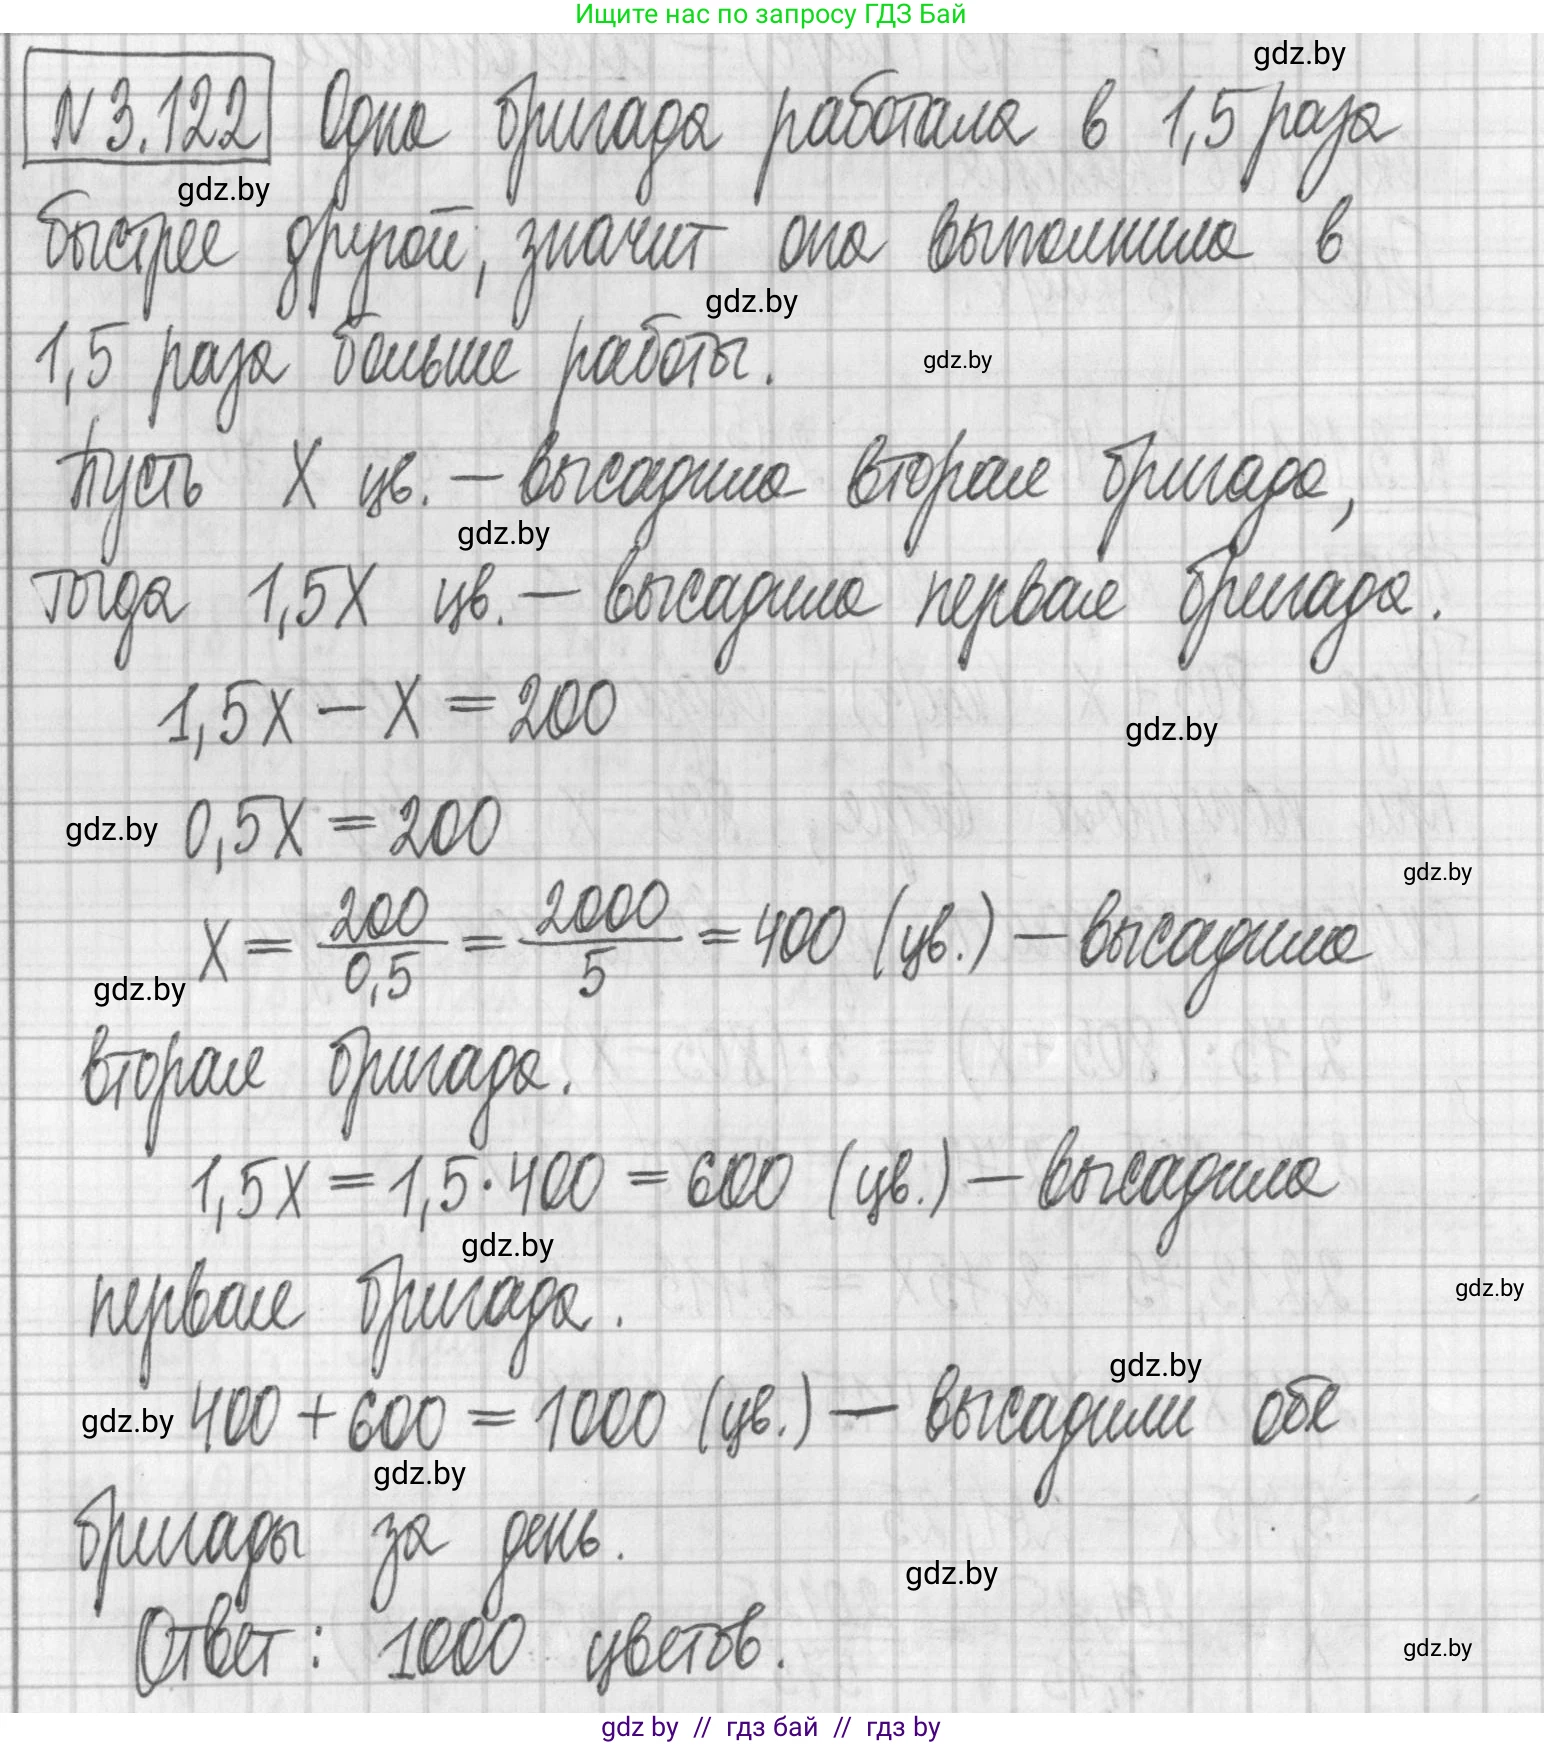 Ищите нас по запросу ГДЗ Бай
gdz.by
N 3.122 Одна бригада работала в 1,5 раза
gdz.by
быстрее другой, значит она выполнила в
gdz.by
1,5 раза больше работы.
gdz.by
Пусть X цв. – высадила вторая бригада,
gdz.by
тогда 1,5X цв. – высадила первая бригада.
1,5X – X = 200
gdz.by
gdz.by 0,5X = 200
gdz.by
X = 200/0,5 = 2000/5 = 400 (цв.) – высадила
gdz.by
вторая бригада.
1,5X = 1,5·400 = 600 (цв.) – высадила
gdz.by
первая бригада.
gdz.by
gdz.by
gdz.by 400 + 600 = 1000 (цв.) – высадили обе
gdz.by
бригады за день.
gdz.by
Ответ: 1000 цветов.
gdz.by
gdz by // гдз бай // гдз by